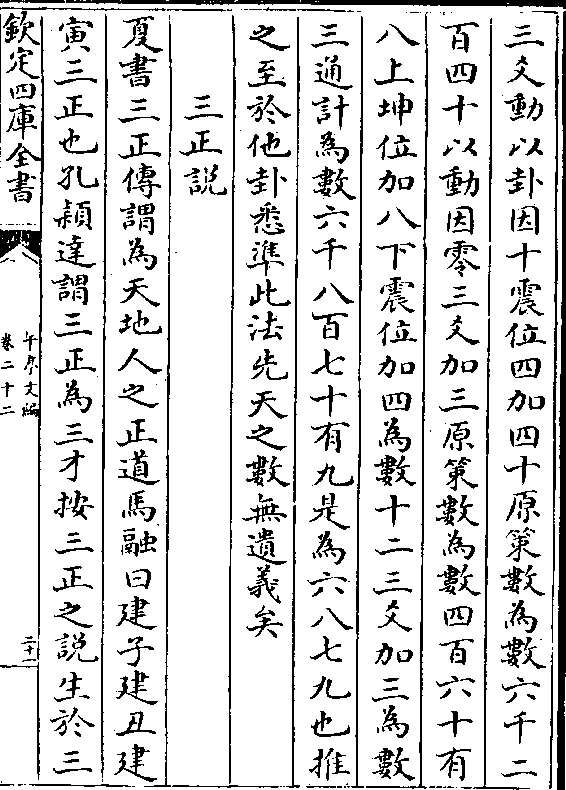 三爻動以卦因十震位四加四十原策數為數六千二
百四十以動因零三爻加三原策數為數四百六十有
八上坤位加八下震位加四為數十二三爻加三為數
三通計為數六千八百七十有九是為六八七九也推
之至於他卦悉準此法先天之數無遺義矣
三正説
夏書三正傳謂為天地人之正道馬融曰建子建丑建
寅三正也孔穎達謂三正為三才按三正之説生於三
欽定四庫全書
午亭文編
卷二十二
二十一